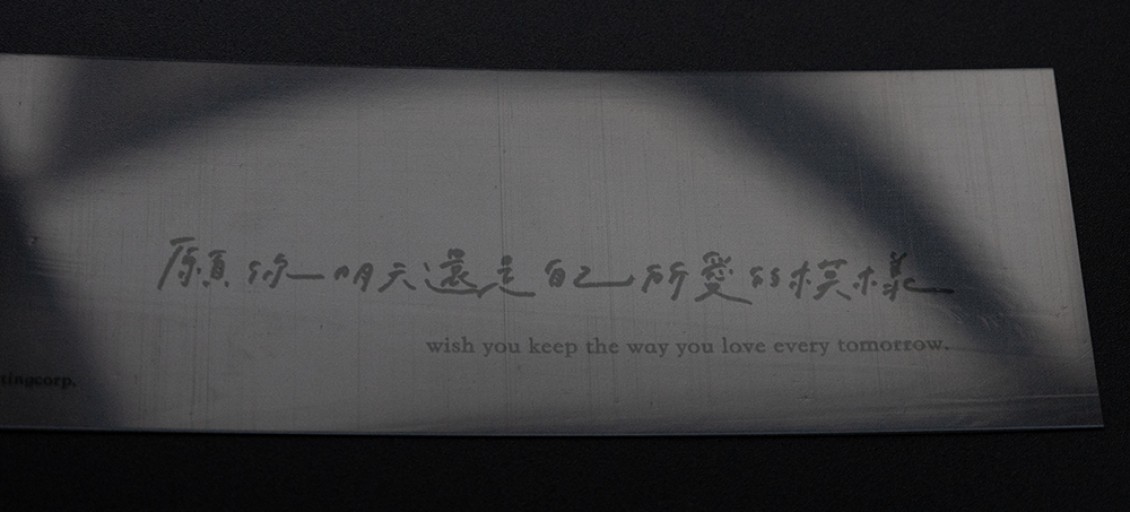 願你明天還是自己所愛的模樣
wish you keep the way you love every tomorrow.
tingcorp.